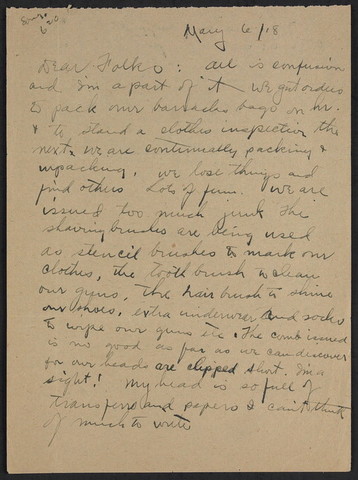 May 6/18
Dear Folks: all is confusion
and I'm a part of it we get orders
to pack our barracks bags on hr.
& to stand a clothes inspection the
next. we are continually packing &
unpacking. we lose things and
find others Lots of fun. we are
issued too much junk The
shaving brushes are being used
as stencil brushes to mark our
clothes, the tooth brush to clean
our guns, the hair brush to shine
our shoes, extra underwear and socks
to wipe our guns etc. The comb issued
is no good as far as we can discover
for our heads are clipped short. I'm a
sight! My head is so full of
transfers and papers I can't think
of much to write